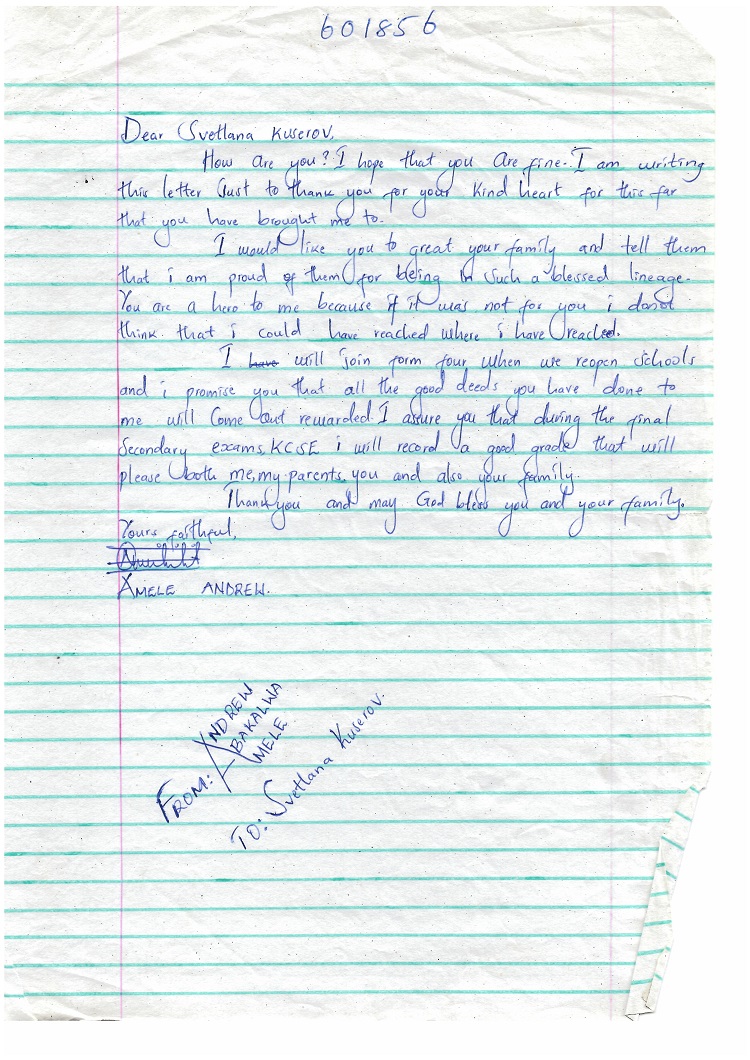 601856
Dear Svetlana Kuserov,
How are you? I hope that you are fine. I am writing
this letter Just to thank you for your kind heart for this far
that you have brought me to.
I would like you to great your family and tell them
that i am proud of them for being in such a blessed lineage.
You are a hero to me because if it was not for you i donot
think that i could have reached where i have reached.
I have will join form four when we reopen schools
and i promise you that all the good deeds you have done to
me will come out rewarded. I assure you that during the final
Secondary exams, KCSE i will record a good grade that will
please both me, my parents, you and also your family.
Thank you and may God bless you and your family.
Yours faithful,
AMELE ANDREW.
FROM: ANDREW
ABAKALWA
AMELE
TO: Svetlana Kuserov.